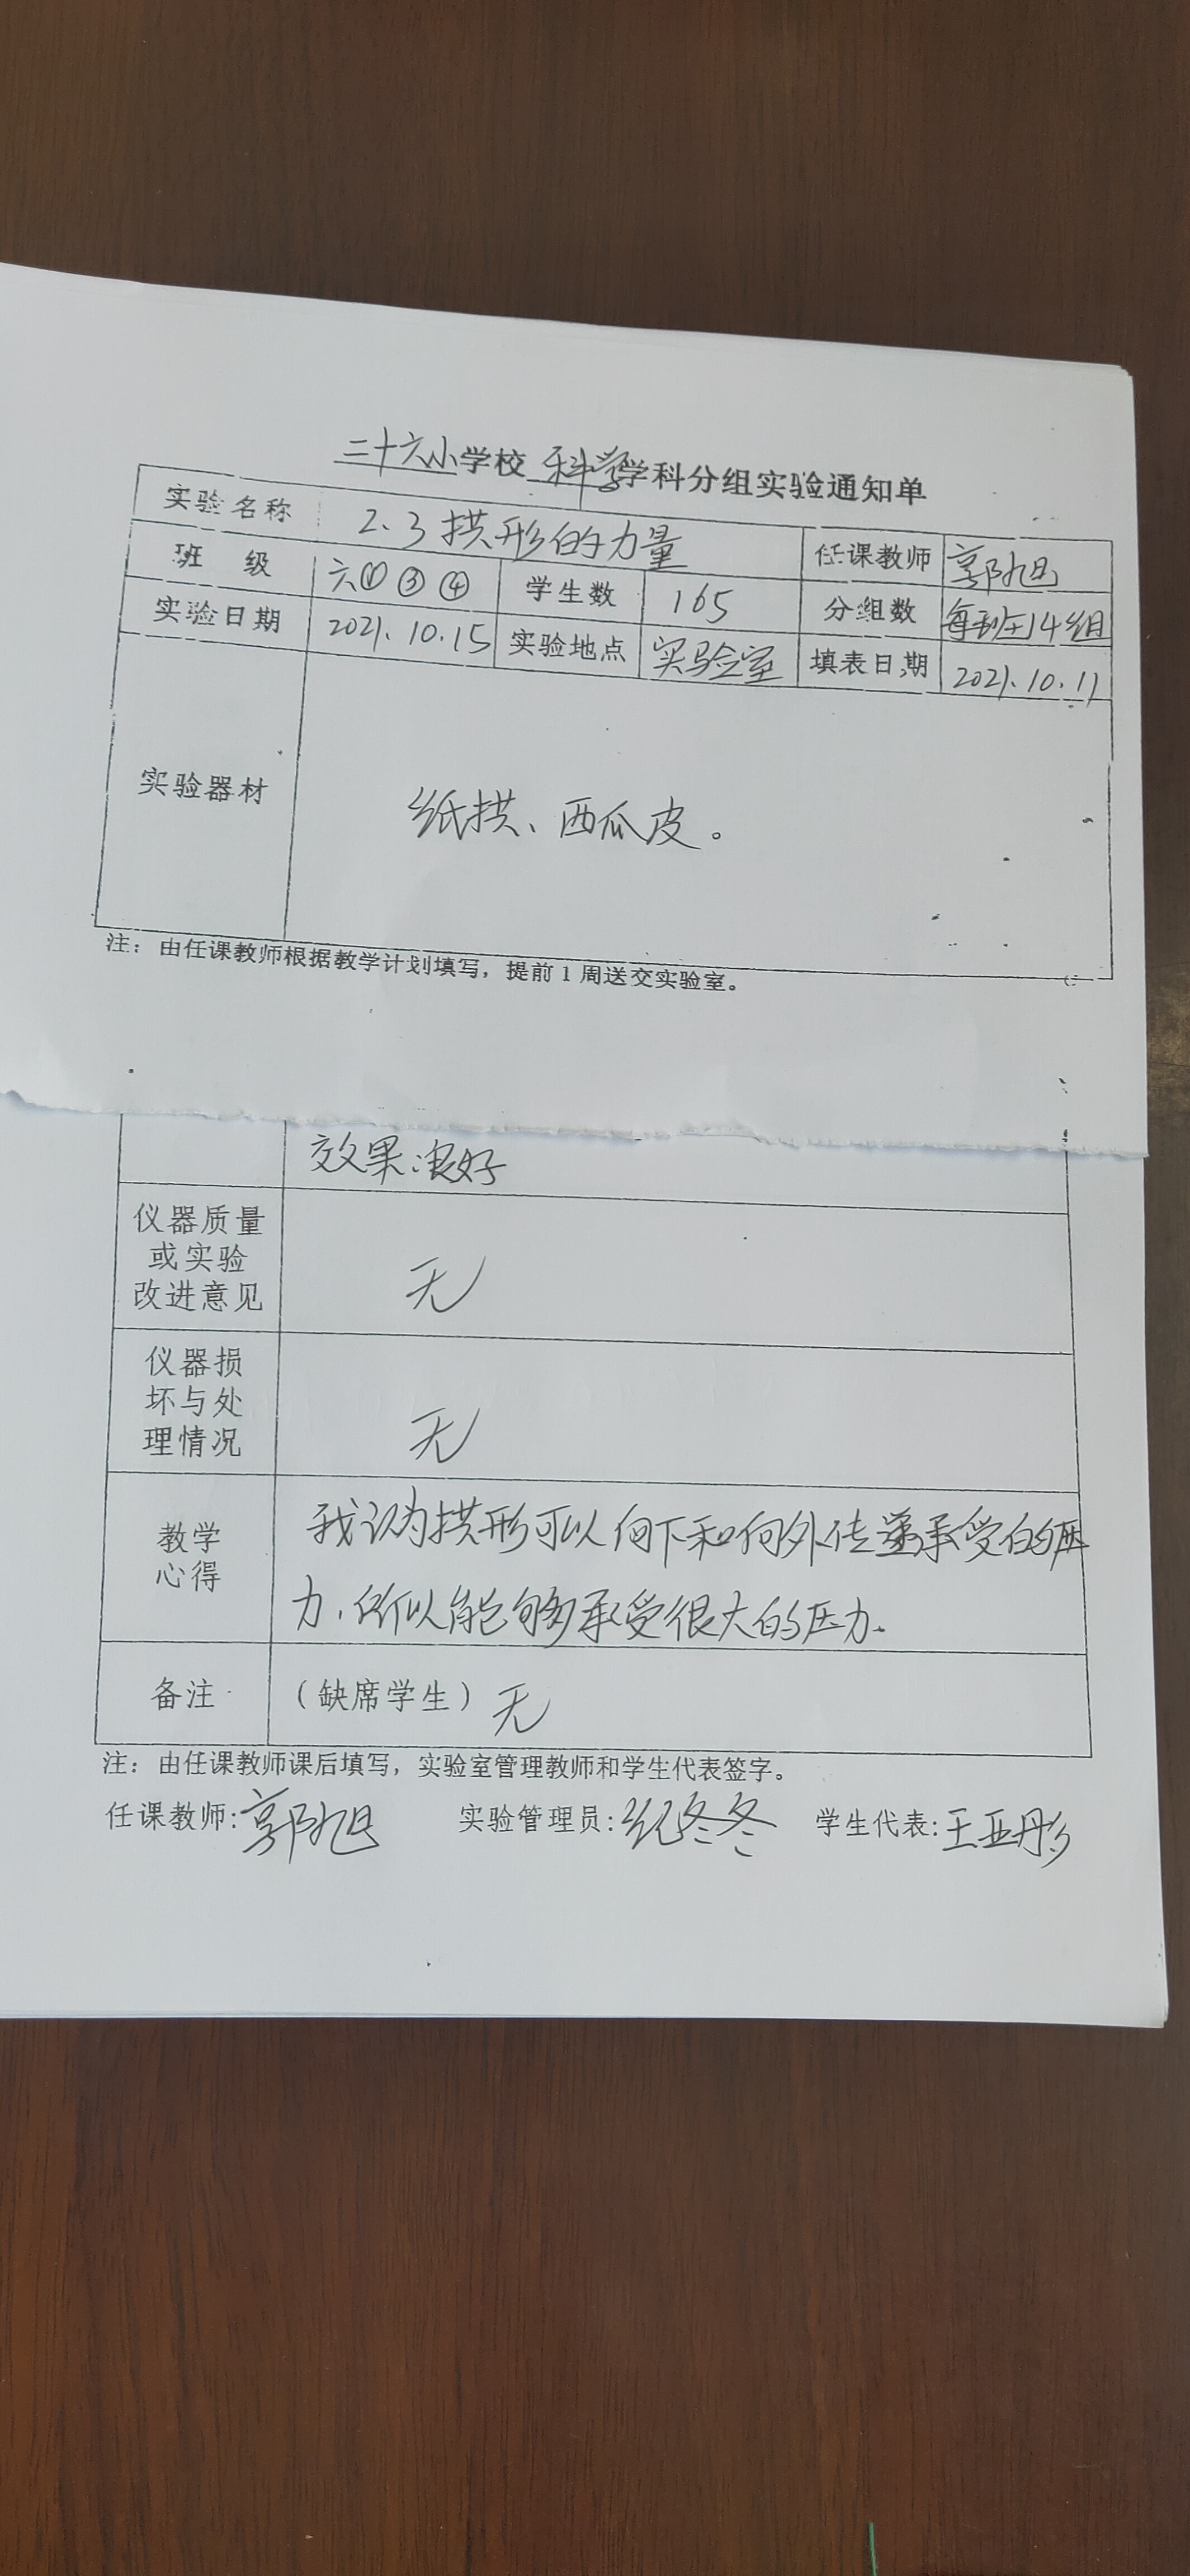 二十六小学校 科学学科分组实验通知单
实验名称 2.3 拱形的力量 任课教师 郭旭
班 级 六① ③ ④ 学生数 165 分组数 每班14组
实验日期 2021.10.15 实验地点 实验室 填表日期 2021.10.11
实验器材 纸拱、西瓜皮。
注：由任课教师根据教学计划填写，提前1周送交实验室。
效果:良好
仪器质量
或实验
改进意见
无
仪器损
坏与处
理情况
无
教学
心得
我认为拱形可以向下和向外传递承受的压
力,所以能够承受很大的压力.
备注 （缺席学生）无
注：由任课教师课后填写，实验室管理教师和学生代表签字。
任课教师:郭旭 实验管理员:纪冬冬 学生代表:王亚彤